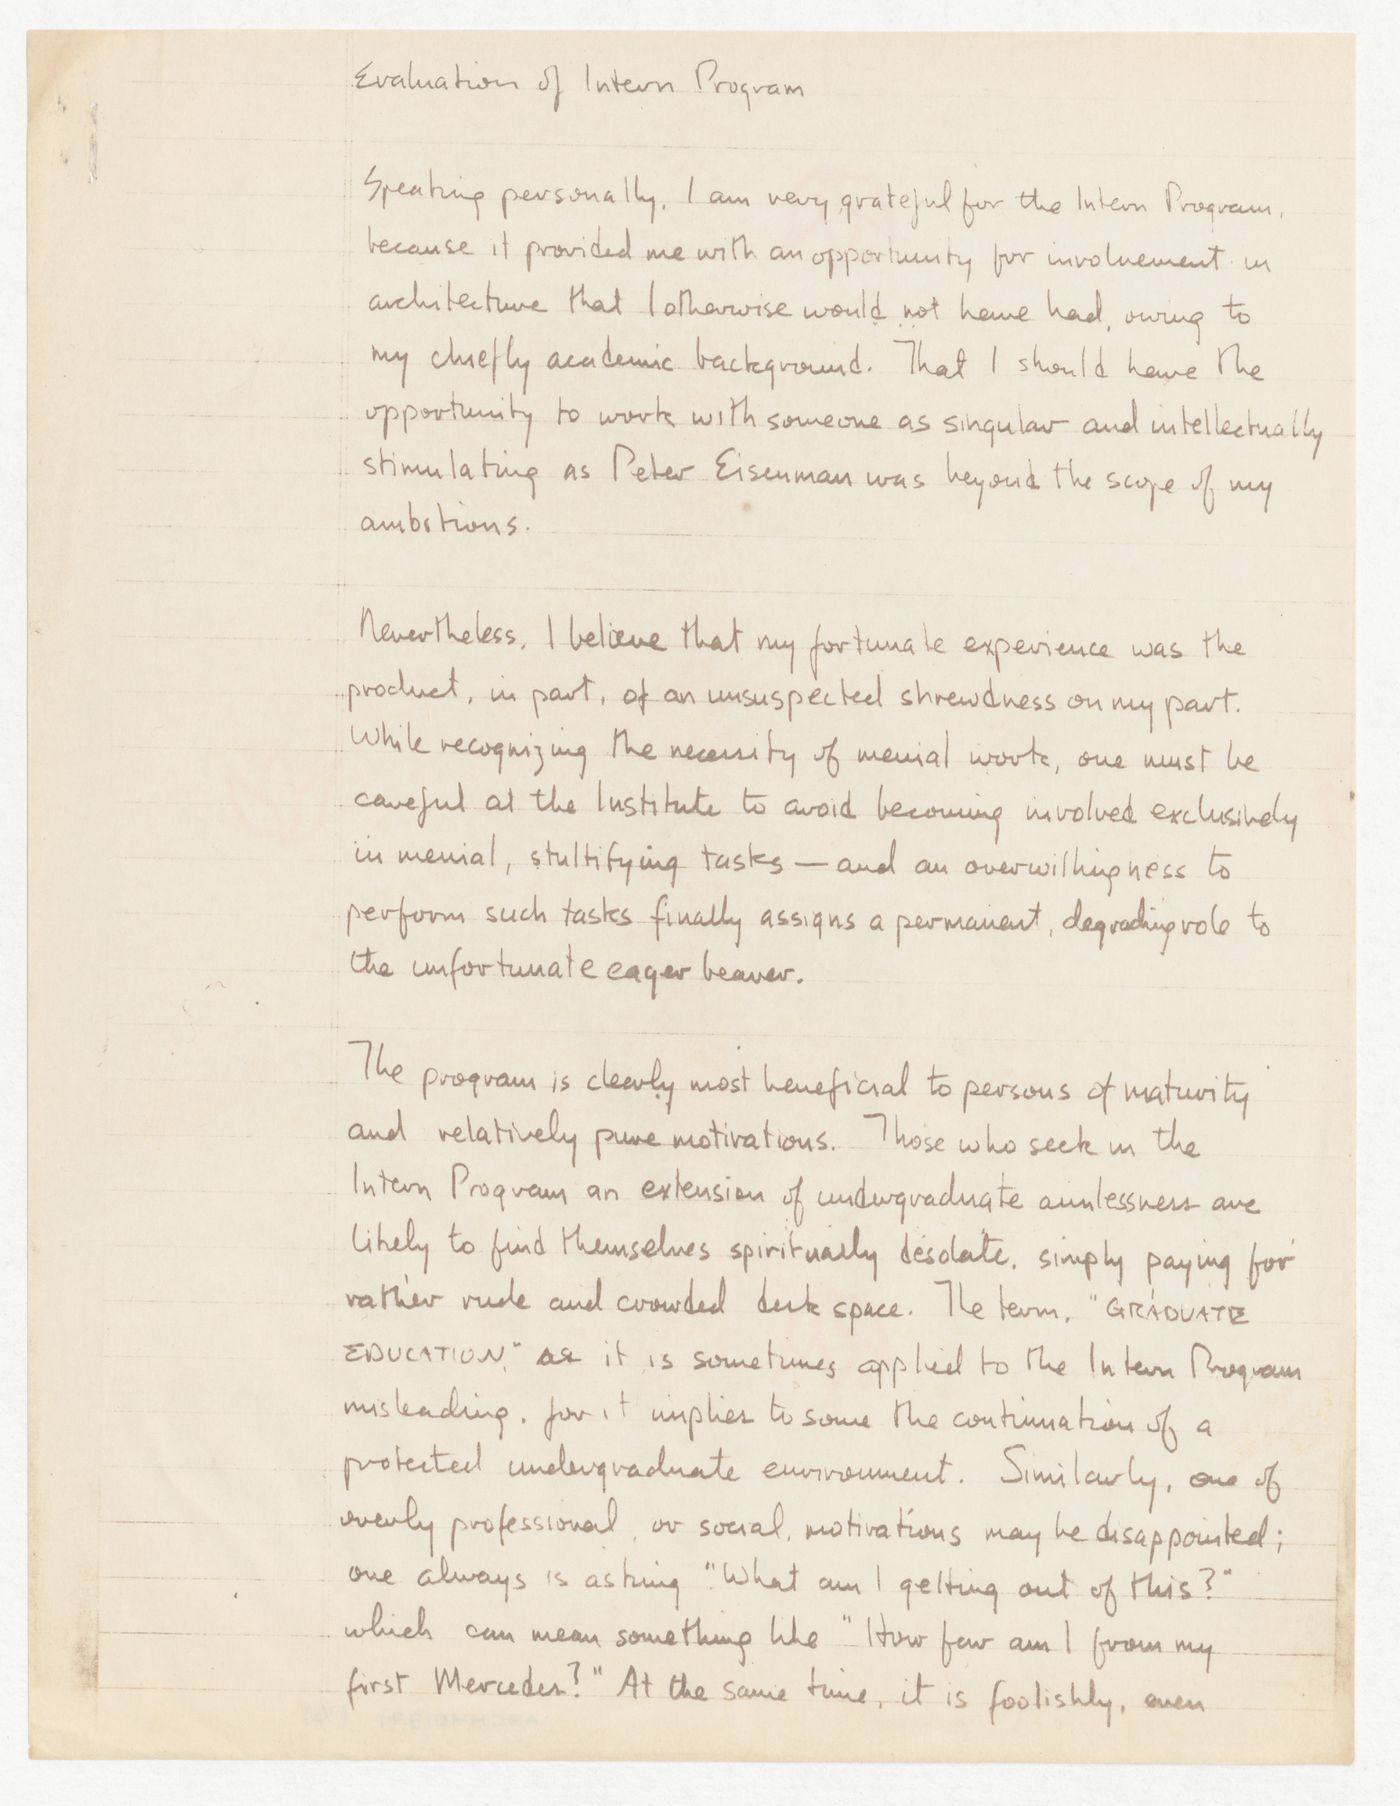 Evaluation of Intern Program
Speaking personally, I am very grateful for the Intern Program,
because it provided me with an opportunity for involvement in
architecture that I otherwise would not have had, owing to
my chiefly academic background. That I should have the
opportunity to work with someone as singular and intellectually
stimulating as Peter Eisenman was beyond the scope of my
ambitions.
Nevertheless, I believe that my fortunate experience was the
product, in part, of an unsuspected shrewdness on my part.
While recognizing the necessity of menial work, one must be
careful at the Institute to avoid becoming involved exclusively
in menial, stultifying tasks — and an overwillingness to
perform such tasks finally assigns a permanent, degrading role to
the unfortunate eager beaver.
The program is clearly most beneficial to persons of maturity
and relatively pure motivations. Those who seek in the
Intern Program an extension of undergraduate aimlessness are
likely to find themselves spiritually desolate, simply paying for
rather rude and crowded desk space. The term, "GRADUATE
EDUCATION," as it is sometimes applied to the Intern Program
misleading, for it implies to some the continuation of a
protected undergraduate environment. Similarly, one of
overly professional, or social, motivations may be disappointed;
one always is asking "What am I getting out of this?"
which can mean something like "How far am I from my
first Mercedes?" At the same time, it is foolishly, even